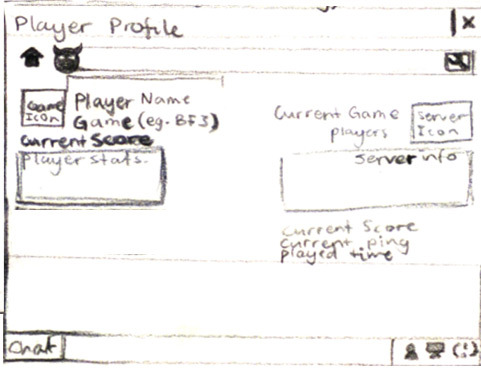 Player Profile
x
Game
Icon
Player Name
Game (eg. BF3)
Current Score
Player stats.
Current Game
players
Server
Icon
Server info
Current Score
Current ping
played time
Chat
(!)